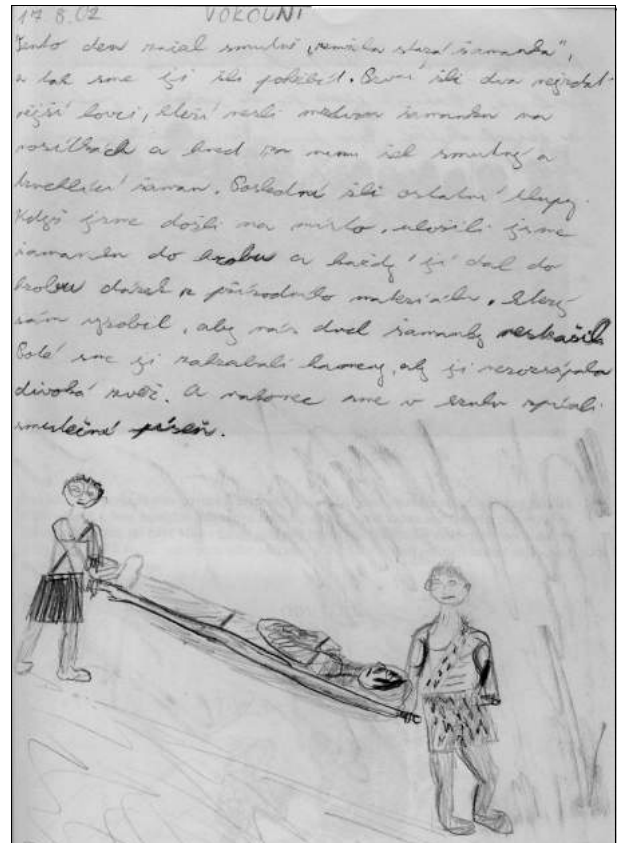 17.8.02 VOKOUNI
Tento den začal smutně „zemřela stará šamanka“,
a tak sme ji šli pohřbít. První šli dva nejzdat-
nější lovci, kteří nesli mrtvou šamanku na
nosítkách a hned za nima šel smutný a
truchlící šaman. Poslední šli ostatní tlupy.
Když jsme došli na místo, uložili jsme
šamanku do hrobu a každý jí dal do
hrobu dárek z přírodního materiálu, který
sám vyrobil, aby nás duch šamanky nestrašil.
Poté sme ji zahrabali kameny, aby ji nerozsápala
divoká zvěř. A nakonec sme v kruhu zpívali
smuteční píseň.